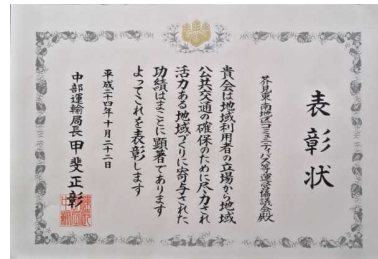 表彰状
芥見東・南地区コミュニティバス等運営協議会殿
貴会は地域利用者の立場から地域
公共交通の確保のために尽力され
活力ある地域づくりに寄与された
功績はまことに顕著であります
よってこれを表彰します
平成二十四年十月二十二日
中部運輸局長 甲斐正彰